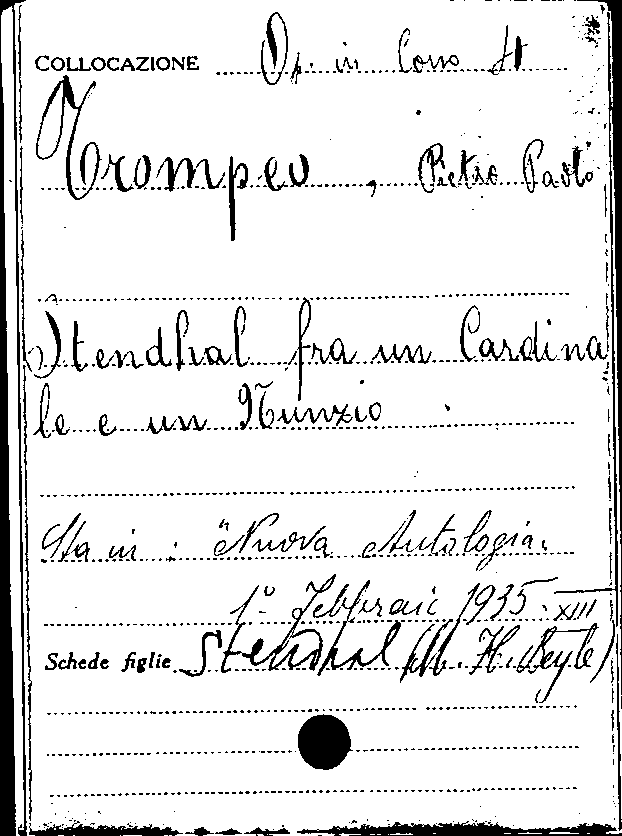 COLLOCAZIONE Op. in Corso
Trompeo, Pietro Paolo
Stendhal fra un Cardina
le e un Nunzio.
Sta in: "Nuova Antologia"
1° Febbraio 1935-XIII
Schede figlie Stendhal (M. H. Beyle)